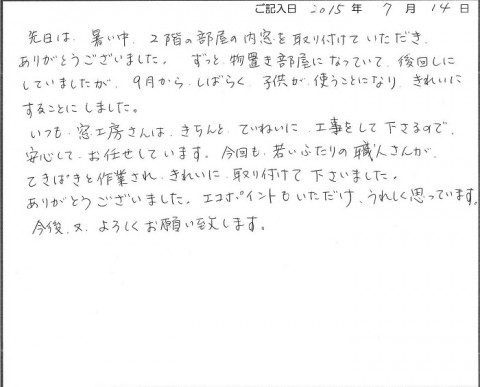 ご記入日 2015 年 7 月 14 日
先日は、暑い中、2階の部屋の内窓を取り付けていただき、
ありがとうございました。 ずっと、物置き部屋になっていて、後回しに
していましたが、9月から、しばらく、子供が、使うことになり、きれいに
することにしました。
いつも、窓工房さんは、きちんと、ていねいに、工事をして下さるので、
安心して、お任せしています。今回も、若いふたりの職人さんが、
てきぱきと作業され、きれいに、取り付けて下さいました。
ありがとうございました。エコポイントもいただけ、うれしく思っています。
今後、又、よろしくお願い致します。